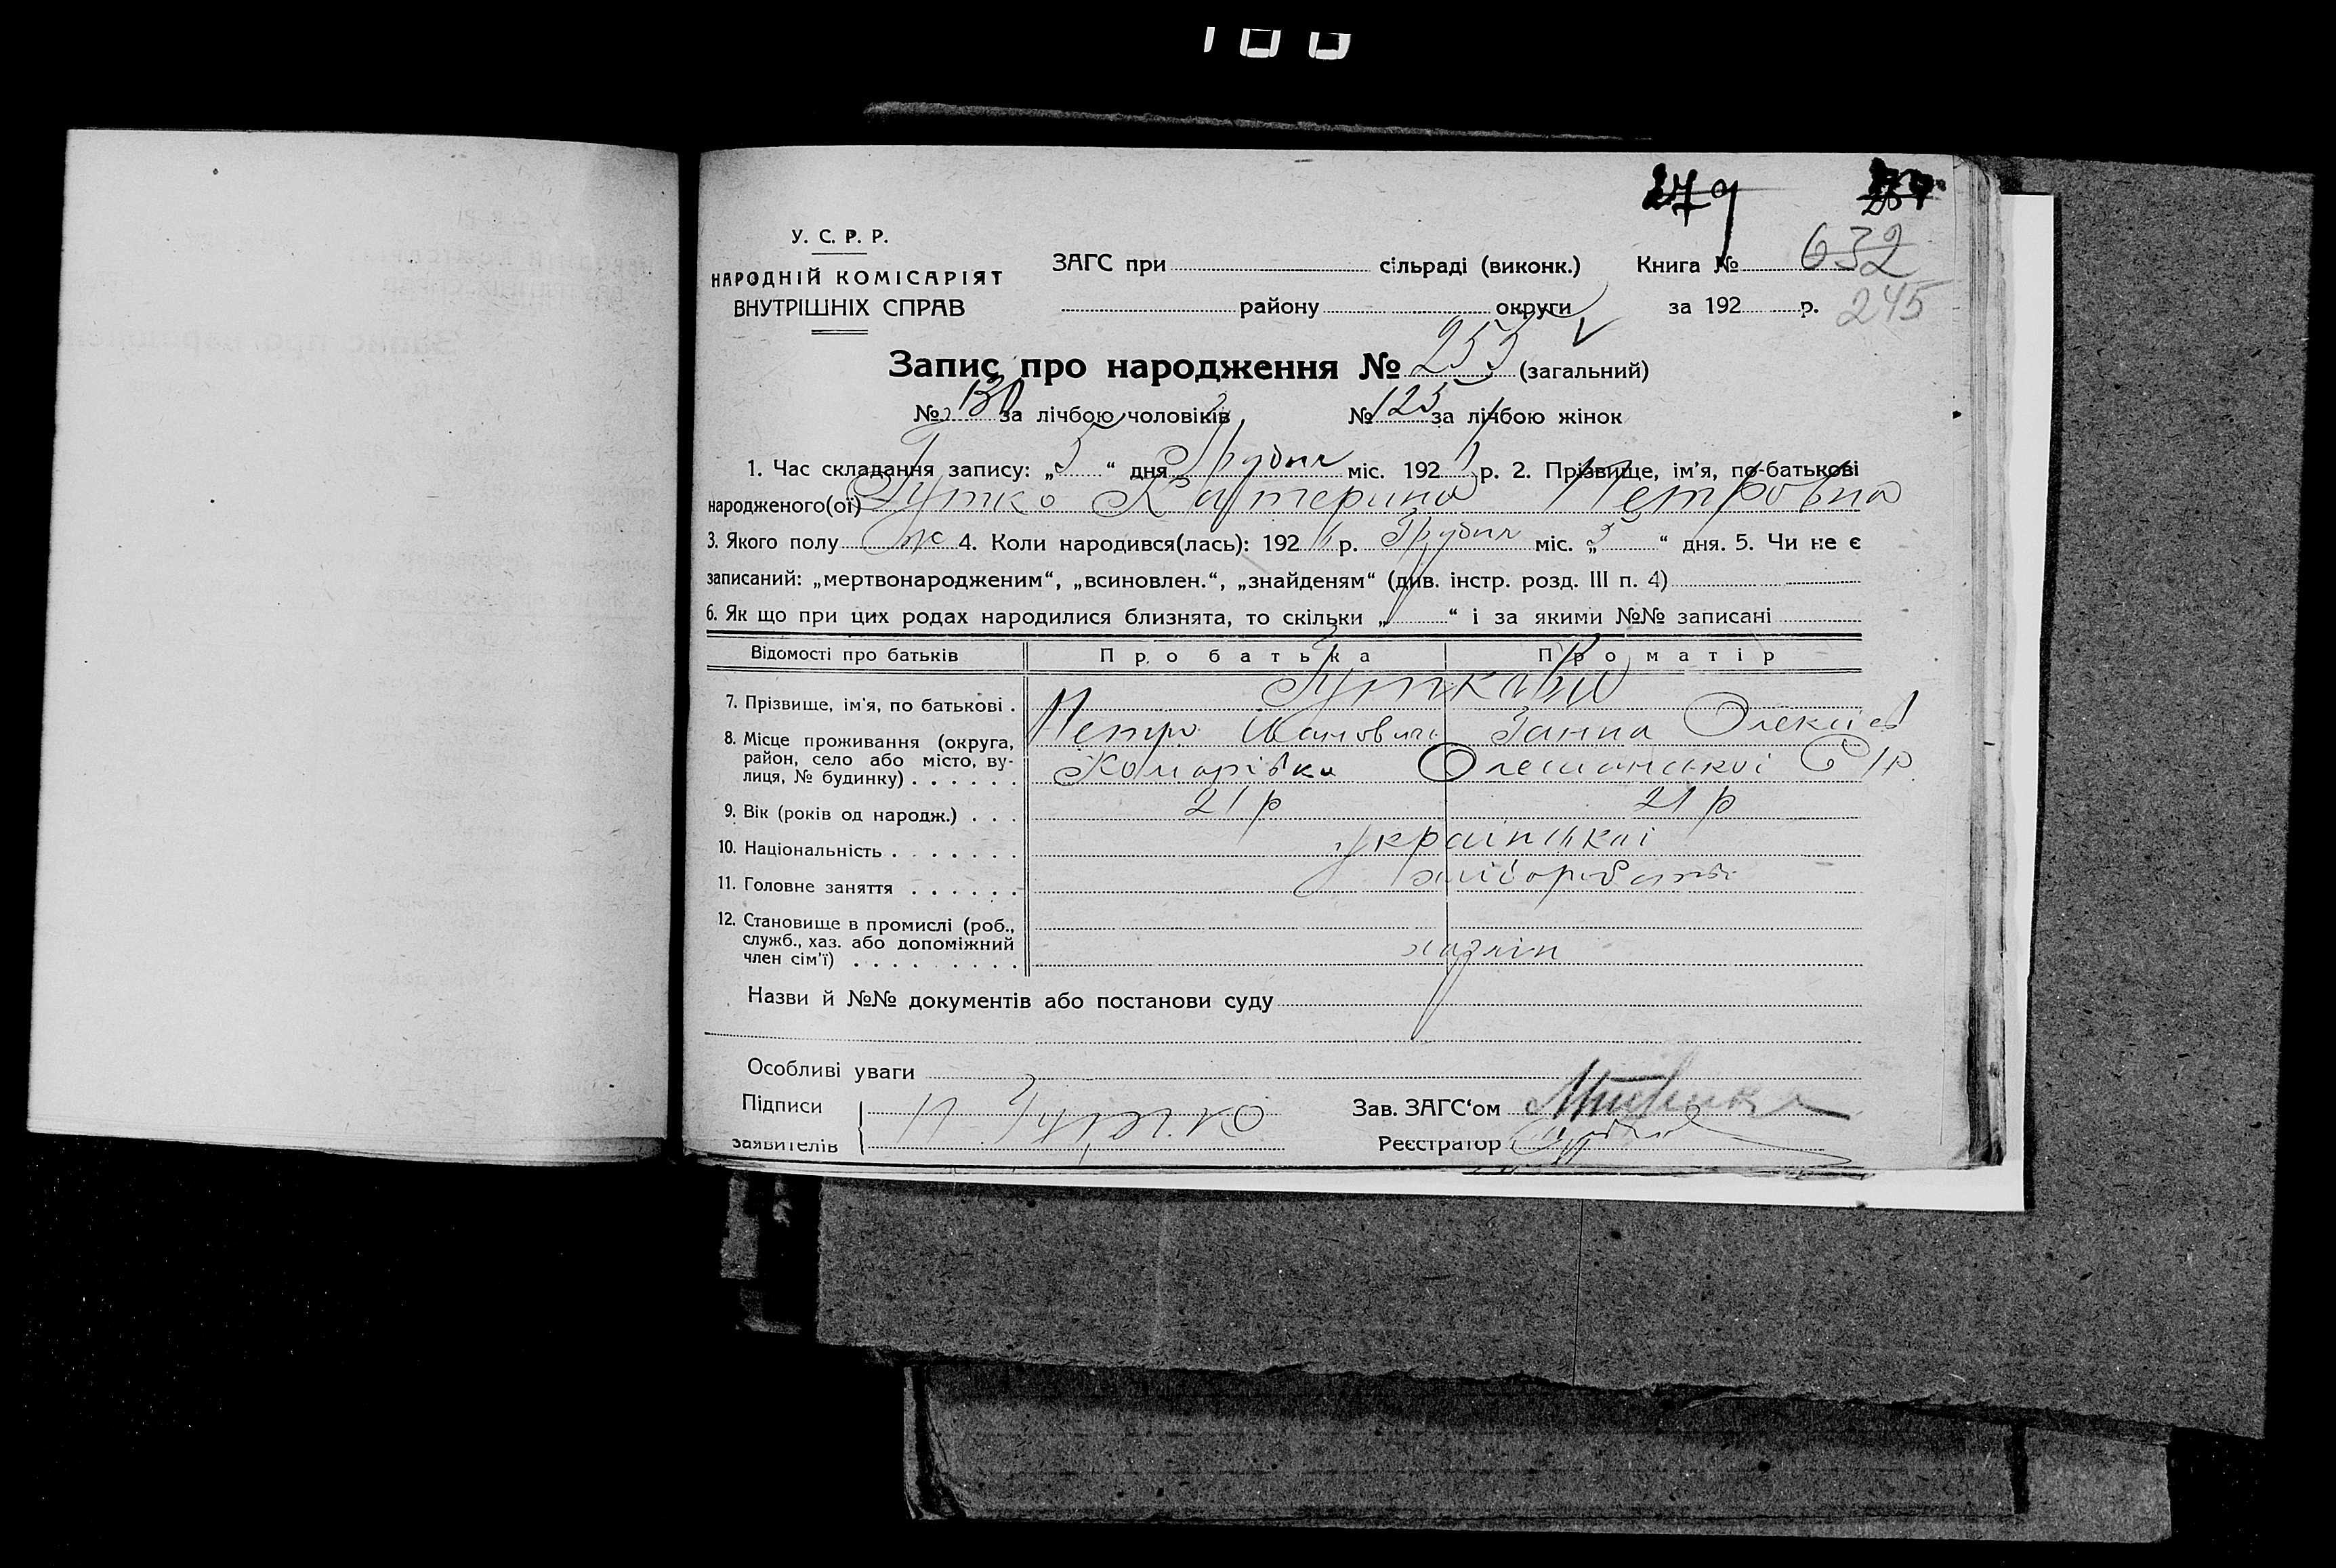 279
У. С. Р. Р.
НАРОДНІЙ КОМІСАРІЯТ
ВНУТРІШНІХ СПРАВ
ЗАГС при сільраді (виконк.) Книга № 632
району округи за 192 р. 245
Запис про народження № 255 (загальний)
№ 130 за лічбою чоловіків № 125 за лічбою жінок
1. Час складання запису: „5“ дня Грудня міс. 192 р. 2. Прізвище, ім'я, по-батькові
народженого(ої) Гутко Катерина Петровна
3. Якого полу ж 4. Коли народився(лась): 192 р. Грудня міс. „ “ дня. 5. Чи не є
записаний: „мертвонародженим“, „всиновлен.“, „знайденям“ (див. інстр. розд. III п. 4)
6. Як що при цих родах народилися близнята, то скільки „ “ і за якими №№ записані
Відомості про батьків Про батька Про матір
7. Прізвище, ім'я, по батькові . Гуткови
Петро Іванович Ганна Олексіев
8. Місце проживання (округа,
район, село або місто, ву-
лиця, № будинку) . . . . . . Комарівка Олешанської С/р.
9. Вік (років од народж.) . . . 21 р 21 р
10. Національність . . . . . . . української
11. Головне заняття . . . . . . хліборобство
12. Становище в промислі (роб.,
служб., хаз. або допоміжний
член сім'ї) . . . . . . . . . хазяїн
Назви й №№ документів або постанови суду
Особливі уваги
Підписи П. Гутко Зав. ЗАГС‘ом
заявителів Реєстратор